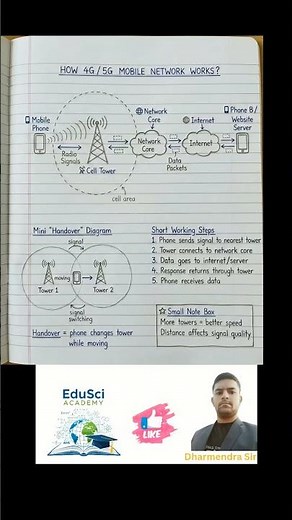 HOW 4G / 5G MOBILE NETWORK WORKS?
Mobile
Phone
Radio
Signals
Cell Tower
Network
Core
Network
Core
Data
Packets
Internet
Internet
Phone B /
Website
Server
cell area
Mini "Handover" Diagram
signal
moving
Tower 1
Tower 2
signal
switching
Handover = phone changes tower
while moving
Short Working Steps
1. Phone sends signal to nearest tower
2. Tower connects to network core
3. Data goes to internet/server
4. Response returns through tower
5. Phone receives data
Small Note Box
More towers = better speed
Distance affects signal quality
EduSci
ACADEMY
LIKE
Dharmendra Sir